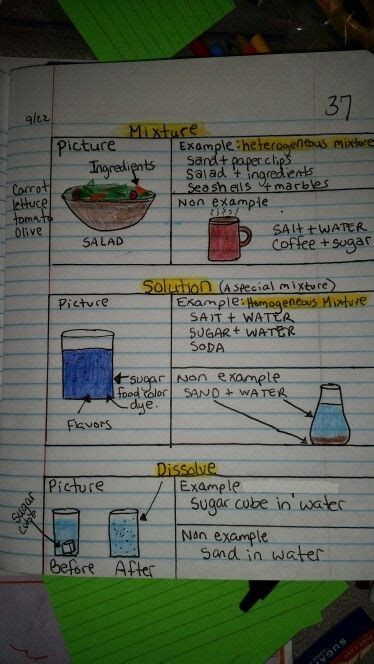 37
9/22
Mixture
Picture
Ingredients
Carrot
lettuce
tomato
olive
SALAD
Example: heterogeneous mixture
Sand + paperclips
Salad + ingredients
Seashells + marbles
Non example
SAlt + WATER
Coffee + sugar
Solution (A special mixture)
Picture
sugar
food color
dye.
Flavors
Example: Homogeneous Mixture
SAIT + WATER
SUGAR + WATER
SODA
Non example
SAND + WATER
Dissolve
Picture
Sugar
cube
Before
After
Example
Sugar cube in water
Non example
Sand in water